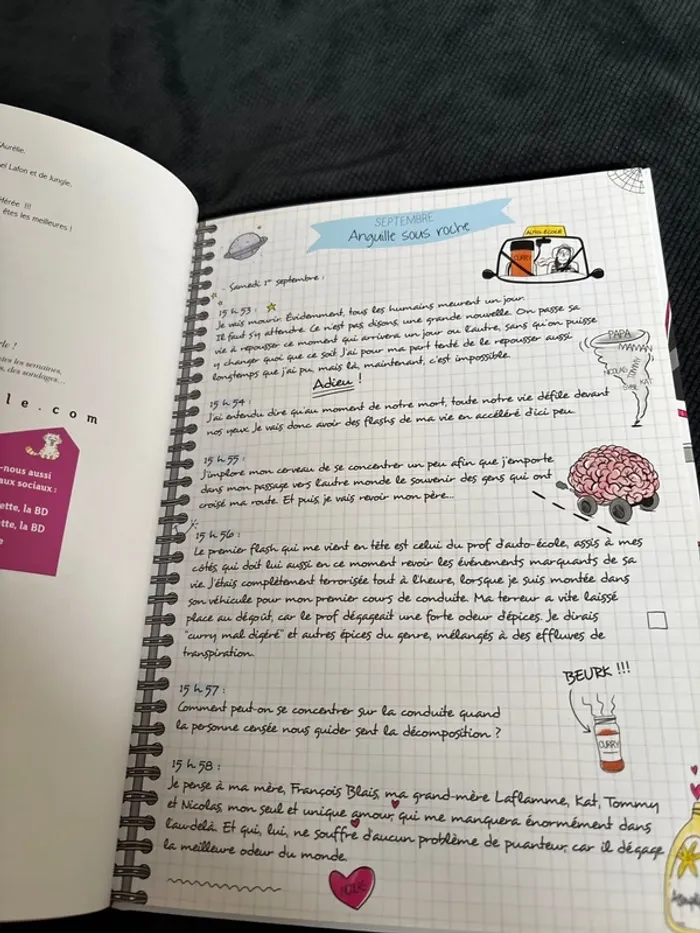 Aurélie,
Lafon et de Jungle,
!!!
êtes les meilleures !
le.com
-nous aussi
aux sociaux :
ette, la BD
ette, la BD
SEPTEMBRE
Anguille sous roche
AUTO-ÉCOLE
CURRY
Samedi 1er septembre :
15 h 53 :
Je vais mourir. Évidemment, tous les humains meurent un jour.
Il faut s'y attendre. Ce n'est pas, disons, une grande nouvelle. On passe sa
vie à repousser ce moment qui arrivera un jour ou l'autre, sans qu'on puisse
y changer quoi que ce soit. J'ai pour ma part tenté de le repousser aussi
longtemps que j'ai pu, mais là, maintenant, c'est impossible.
Adieu !
PAPA
MAMAN
NICOLAS
TOMMY
KAT
15 h 54 :
J'ai entendu dire qu'au moment de notre mort, toute notre vie défile devant
nos yeux. Je vais donc avoir des flashs de ma vie en accéléré d'ici peu.
15 h 55 :
J'implore mon cerveau de se concentrer un peu afin que j'emporte
dans mon passage vers l'autre monde le souvenir des gens qui ont
croisé ma route. Et puis, je vais revoir mon père...
15 h 56 :
Le premier flash qui me vient en tête est celui du prof d'auto-école, assis à mes
côtés, qui doit lui aussi en ce moment revoir les événements marquants de sa
vie. J'étais complètement terrorisée tout à l'heure, lorsque je suis montée dans
son véhicule pour mon premier cours de conduite. Ma terreur a vite laissé
place au dégoût, car le prof dégageait une forte odeur d'épices. Je dirais
"curry mal digéré" et autres épices du genre, mélangés à des effluves de
transpiration.
15 h 57 :
Comment peut-on se concentrer sur la conduite quand
la personne censée nous guider sent la décomposition ?
BEURK !!!
CURRY
15 h 58 :
Je pense à ma mère, François Blais, ma grand-mère Laflamme, Kat, Tommy
et Nicolas, mon seul et unique amour, qui me manquera énormément dans
l'au-delà. Et qui, lui, ne souffre d'aucun problème de puanteur, car il dégage
la meilleure odeur du monde.
NICOLAS